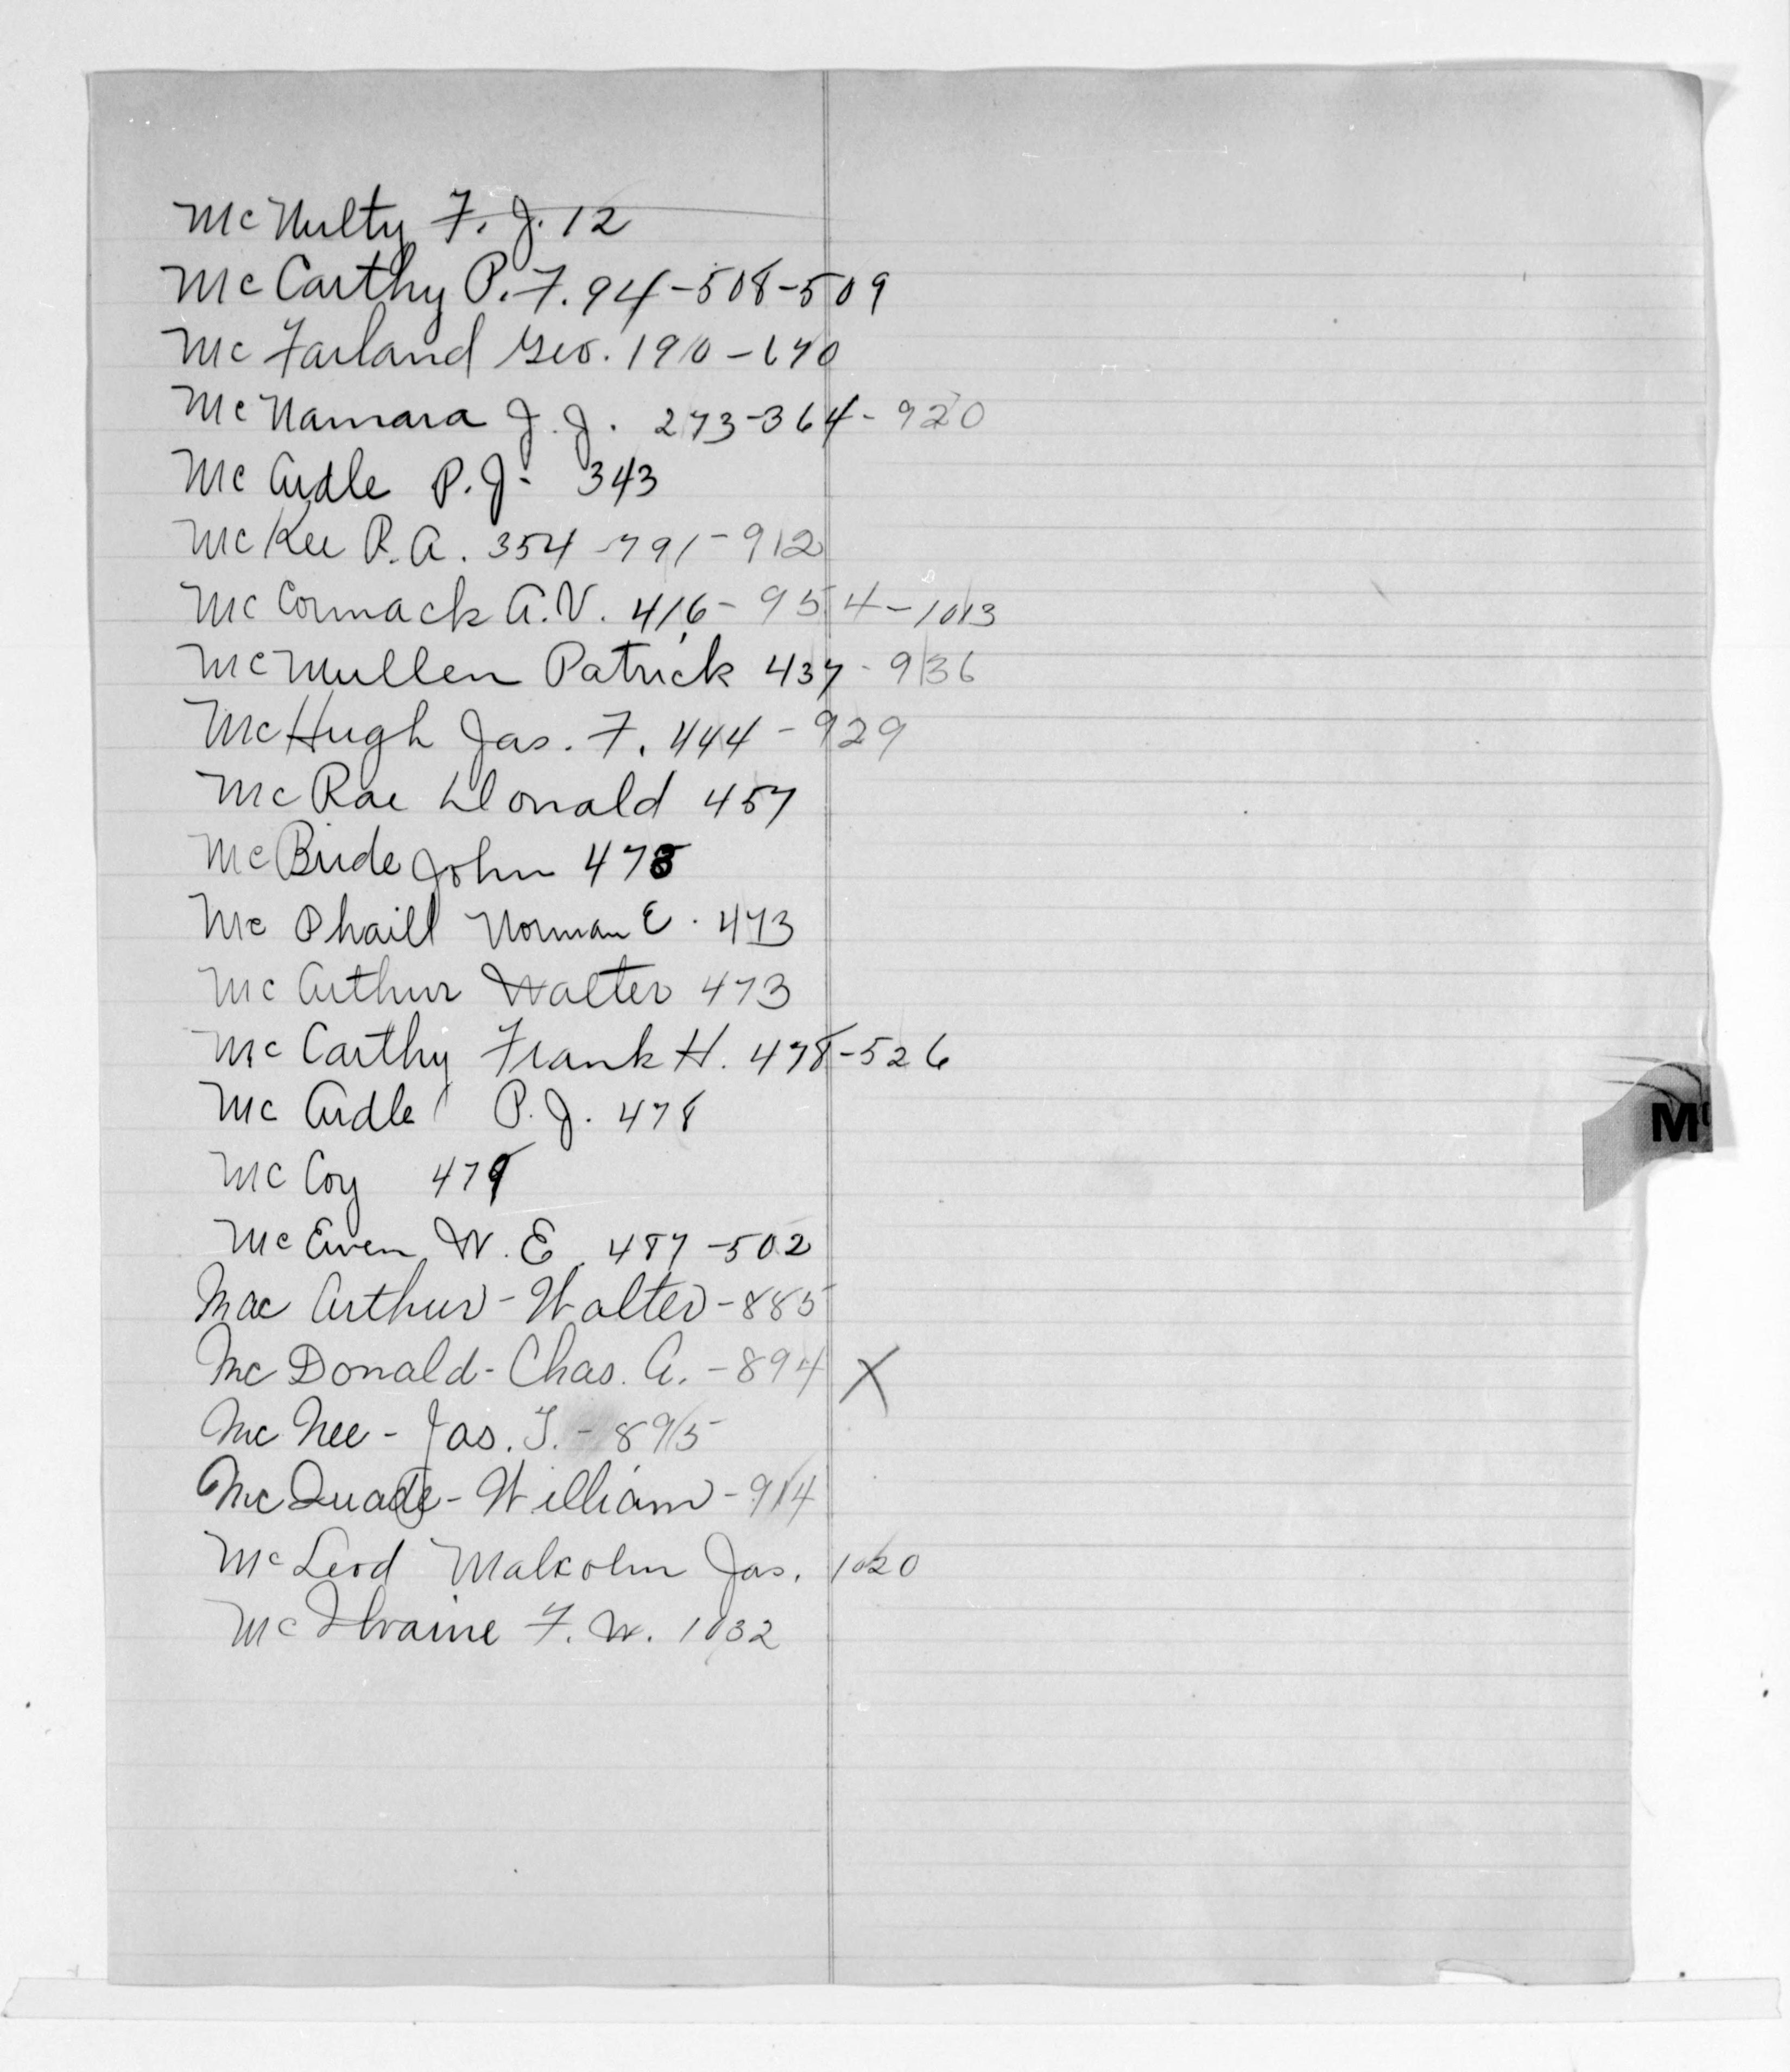 McNulty F. J. 12
McCarthy P. F. 94-508-509
McFarland Geo. 190-670
McNamara J. J. 273-364-920
McArdle P. J. 343
McKee R. A. 354-791-912
McCormack A. V. 416-954-1013
McMullen Patrick 437-936
McHugh Jas. F. 444-929
McRae Donald 457
McBride John 478
McPhaill Norman E. 473
McArthur Walter 473
McCarthy Frank H. 478-526
McArdle P. J. 478
McCoy 479
McEwen W. E. 487-502
MacArthur-Walter-885
McDonald-Chas. A.-894 X
McNee-Jas. T.-895
McQuade-William-914
McLeod Malkolm Jas. 1020
McIlvaine F. W. 1032
M